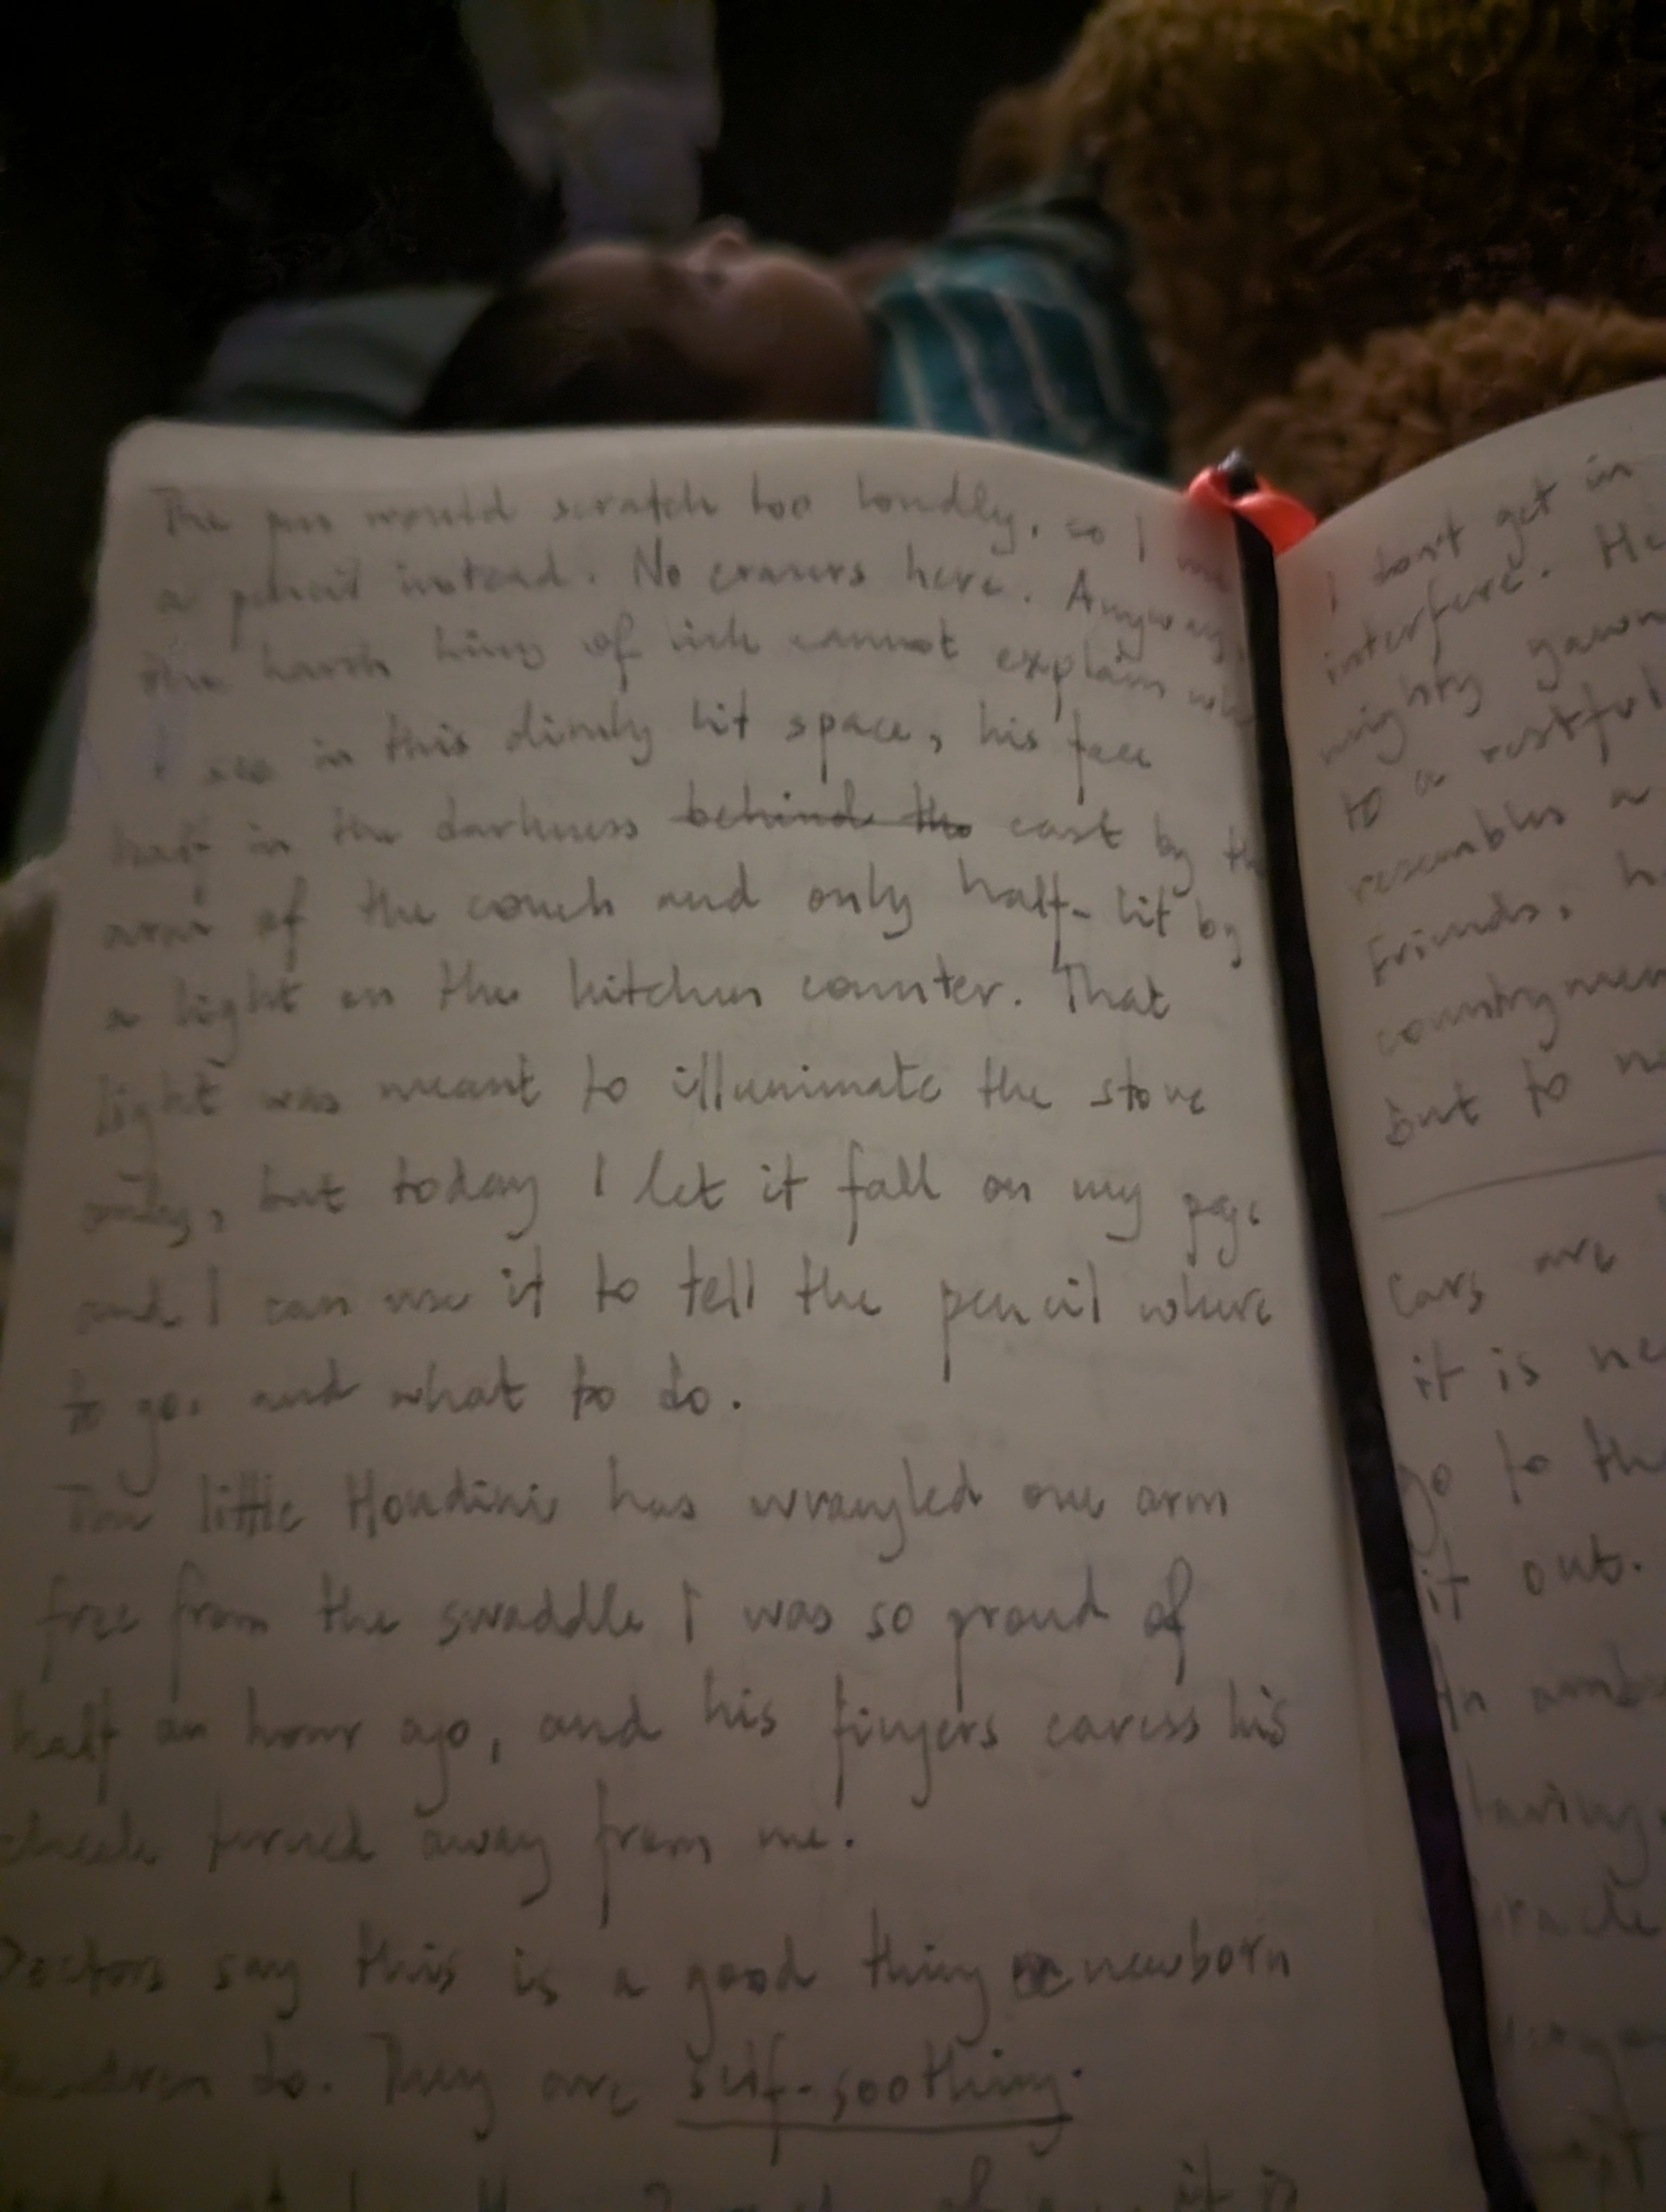 The pen would scratch too loudly, so I use
a pencil instead. No erasers here. Anyway,
the harsh lines of ink cannot explain what
I see in this dimly lit space, his face
half in the darkness behind the cast by the
arm of the couch and only half-lit by
a light on the kitchen counter. That
light was meant to illuminate the stove
only, but today I let it fall on my page
and I can use it to tell the pencil where
to go, and what to do.
The little Houdini has wrangled one arm
free from the swaddle I was so proud of
half an hour ago, and his fingers caress his
cheek turned away from me.
Doctors say this is a good thing newborn
children do. They are self-soothing.
it is
I don't get in
interfere. He
mighty yawn
to a restful
resembles a
Friends,
countrymen
but to
Cars are
it is
go to the
it out.
In
having